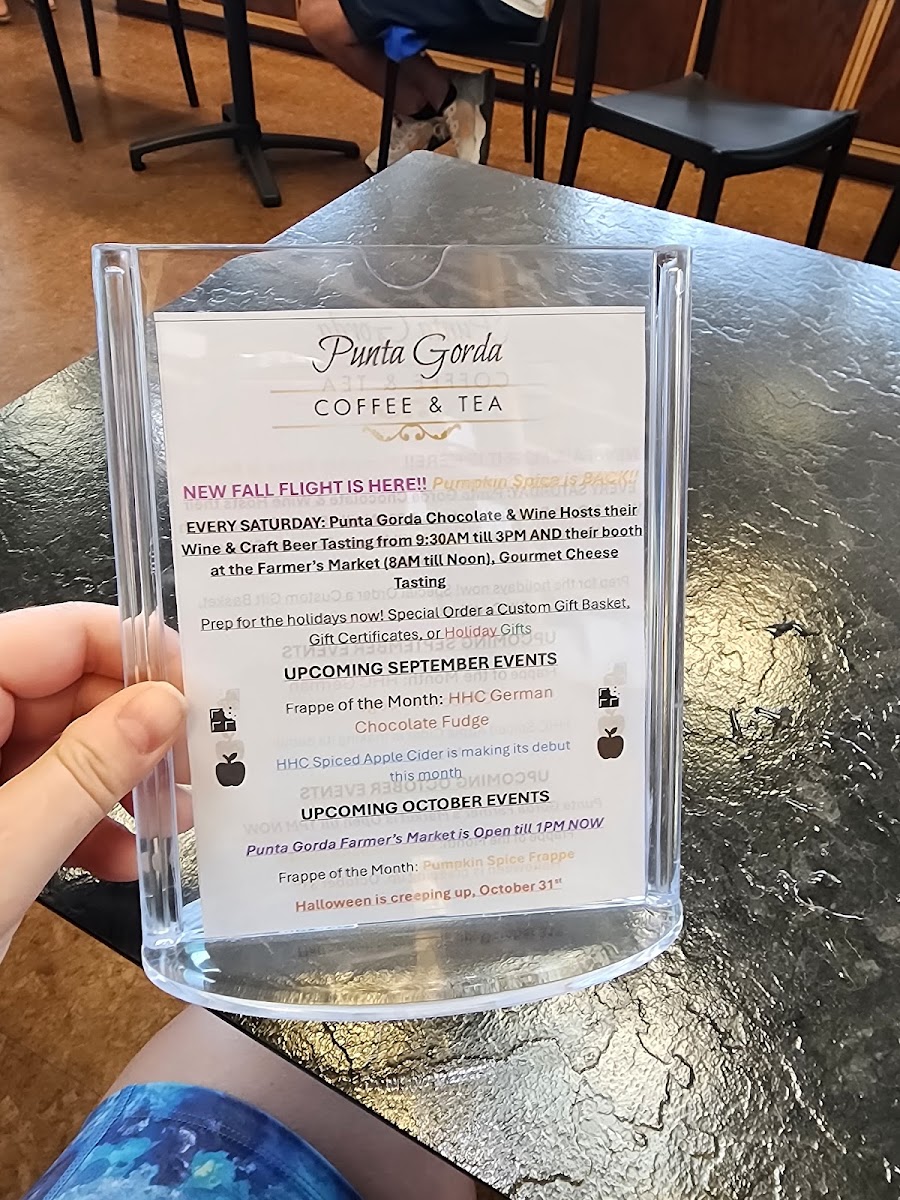 Punta Gorda
COFFEE & TEA
NEW FALL FLIGHT IS HERE!! Pumpkin Spice is BACK!!
EVERY SATURDAY: Punta Gorda Chocolate & Wine Hosts their
Wine & Craft Beer Tasting from 9:30AM till 3PM AND their booth
at the Farmer's Market (8AM till Noon), Gourmet Cheese
Tasting
Prep for the holidays now! Special Order a Custom Gift Basket,
Gift Certificates, or Holiday Gifts
UPCOMING SEPTEMBER EVENTS
Frappe of the Month: HHC German
Chocolate Fudge
HHC Spiced Apple Cider is making its debut
this month
UPCOMING OCTOBER EVENTS
Punta Gorda Farmer's Market is Open till 1PM NOW
Frappe of the Month: Pumpkin Spice Frappe
Halloween is creeping up, October 31st